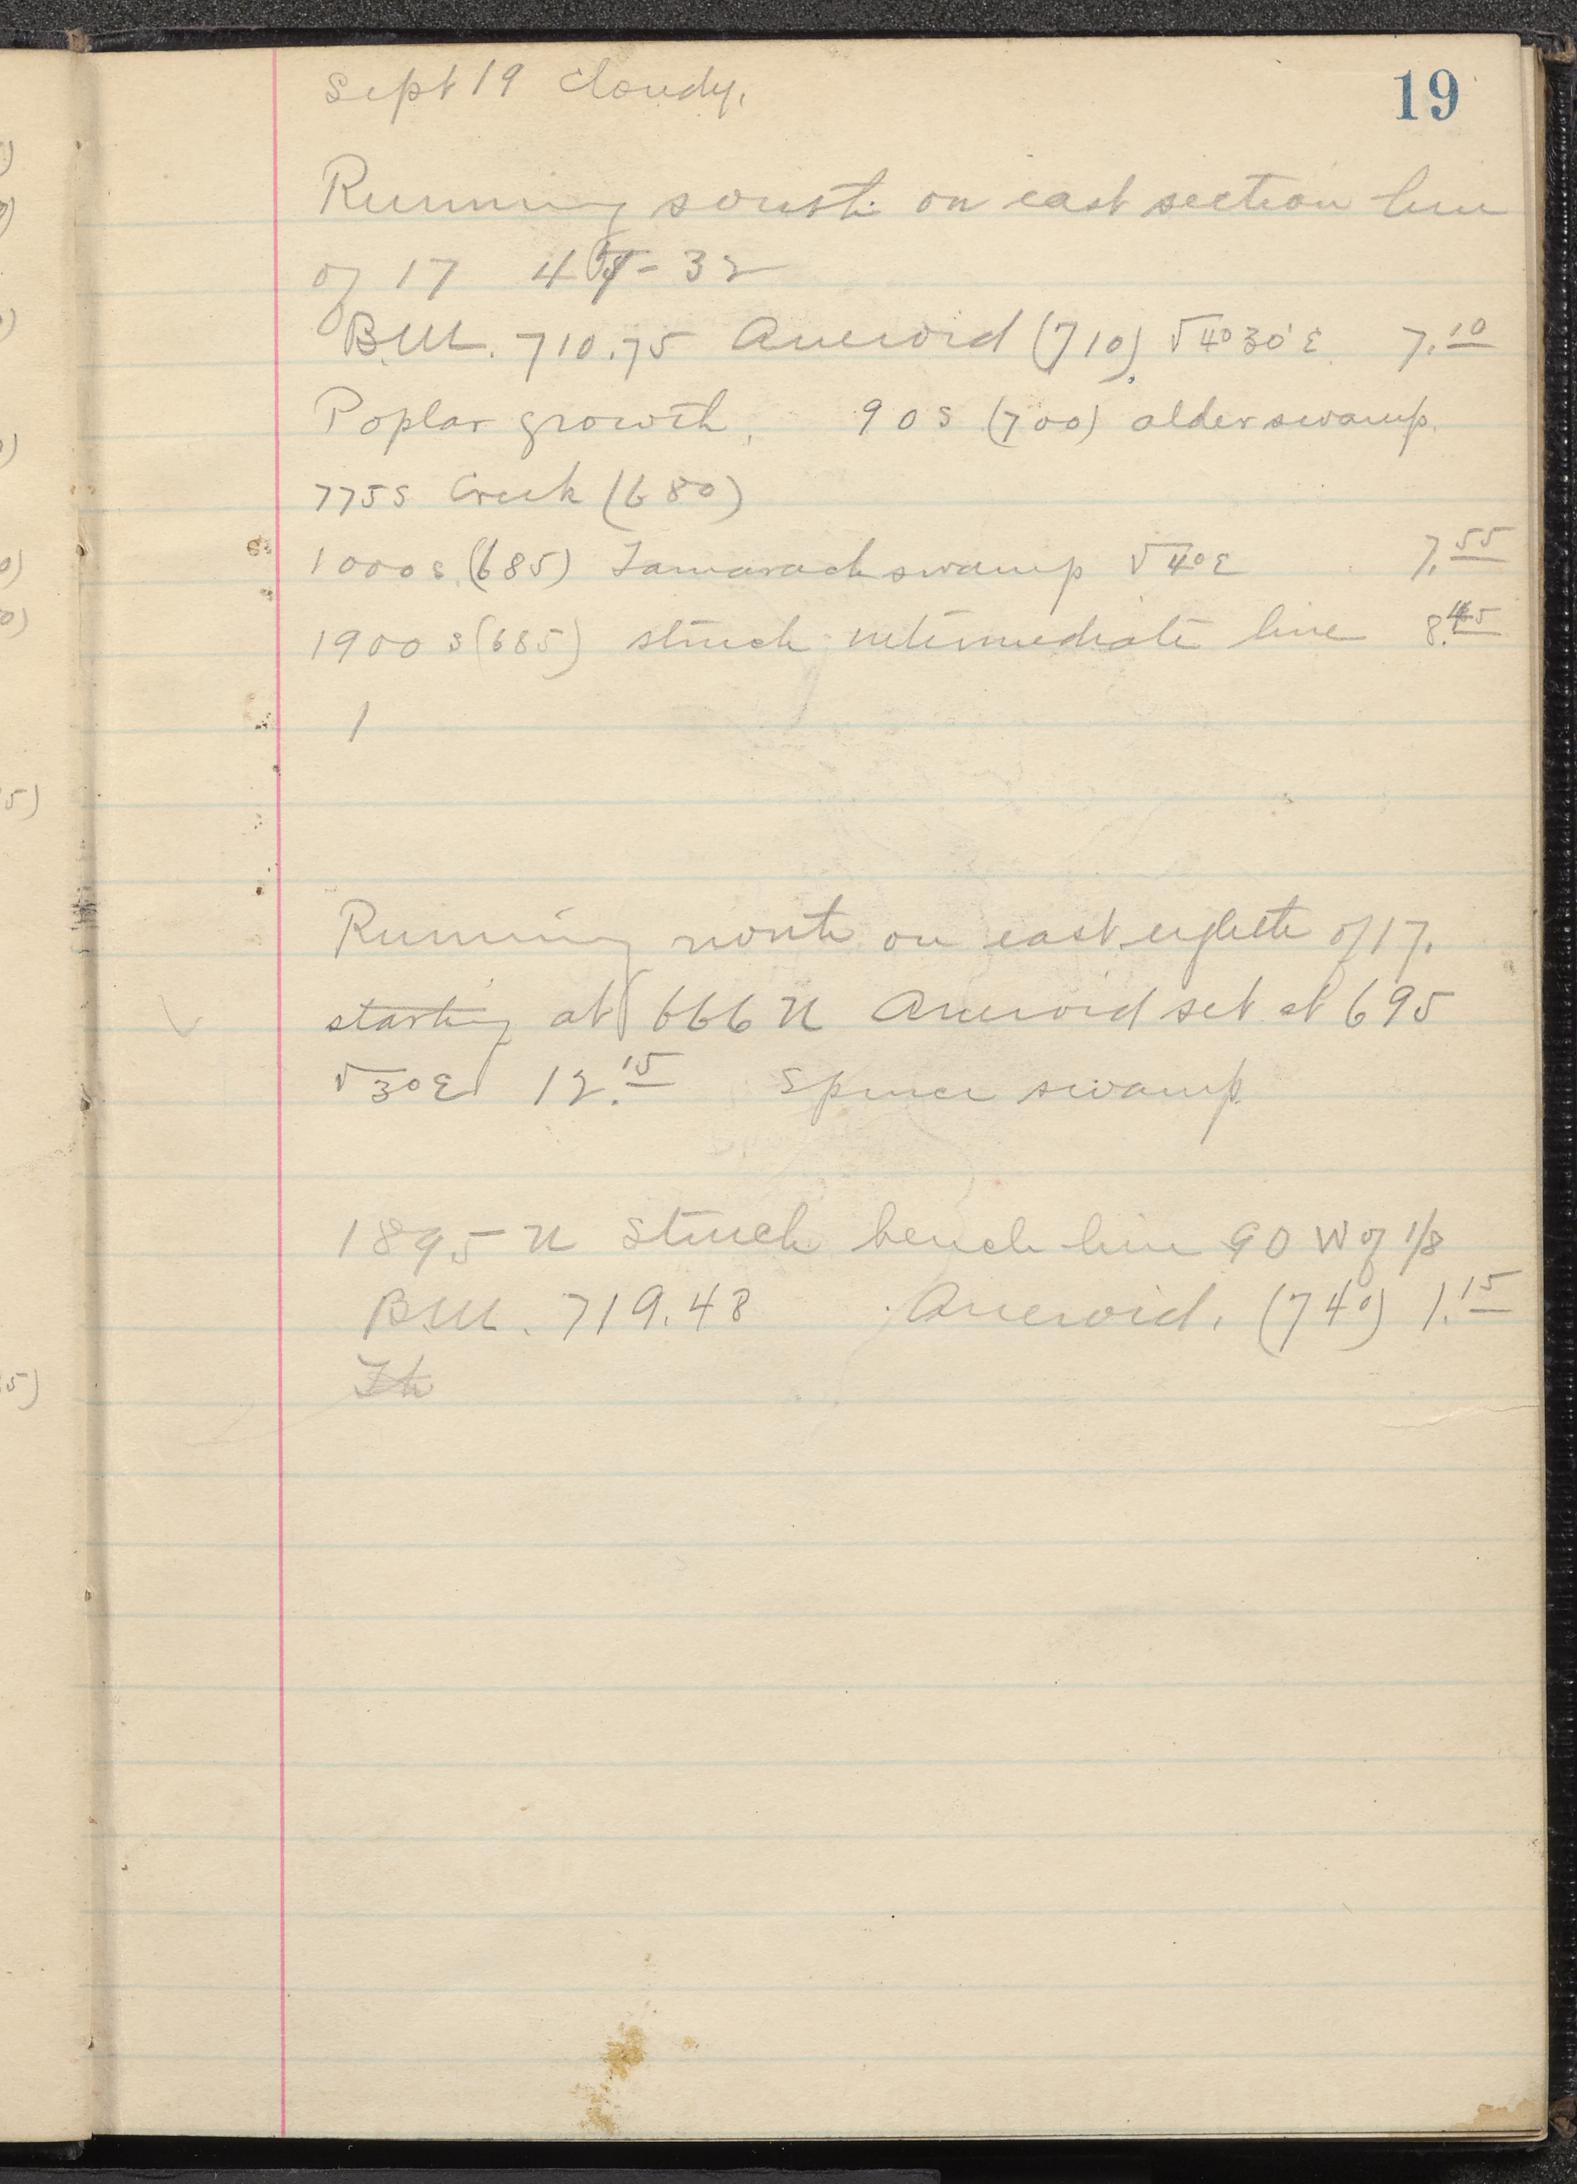 19
Sept 19 Cloudy.
Running south on east section line
of 17 45-32
B.M. 710.75 Aneroid (710) √4°30'E 7.10
Poplar growth. 90 S (700) alder swamp.
775 S Creek (680)
1000 S (685) Tamarack swamp √4°E 7.55
1900 S (685) struck intermediate line 8.45
1
Running north on east eighth of 17.
starting at 666 N Aneroid set at 695
√3°E 12.15 Spruce swamp
1895 N Struck bench line 90 W of 1/8
B.M. 719.48 Aneroid. (740) 1.15